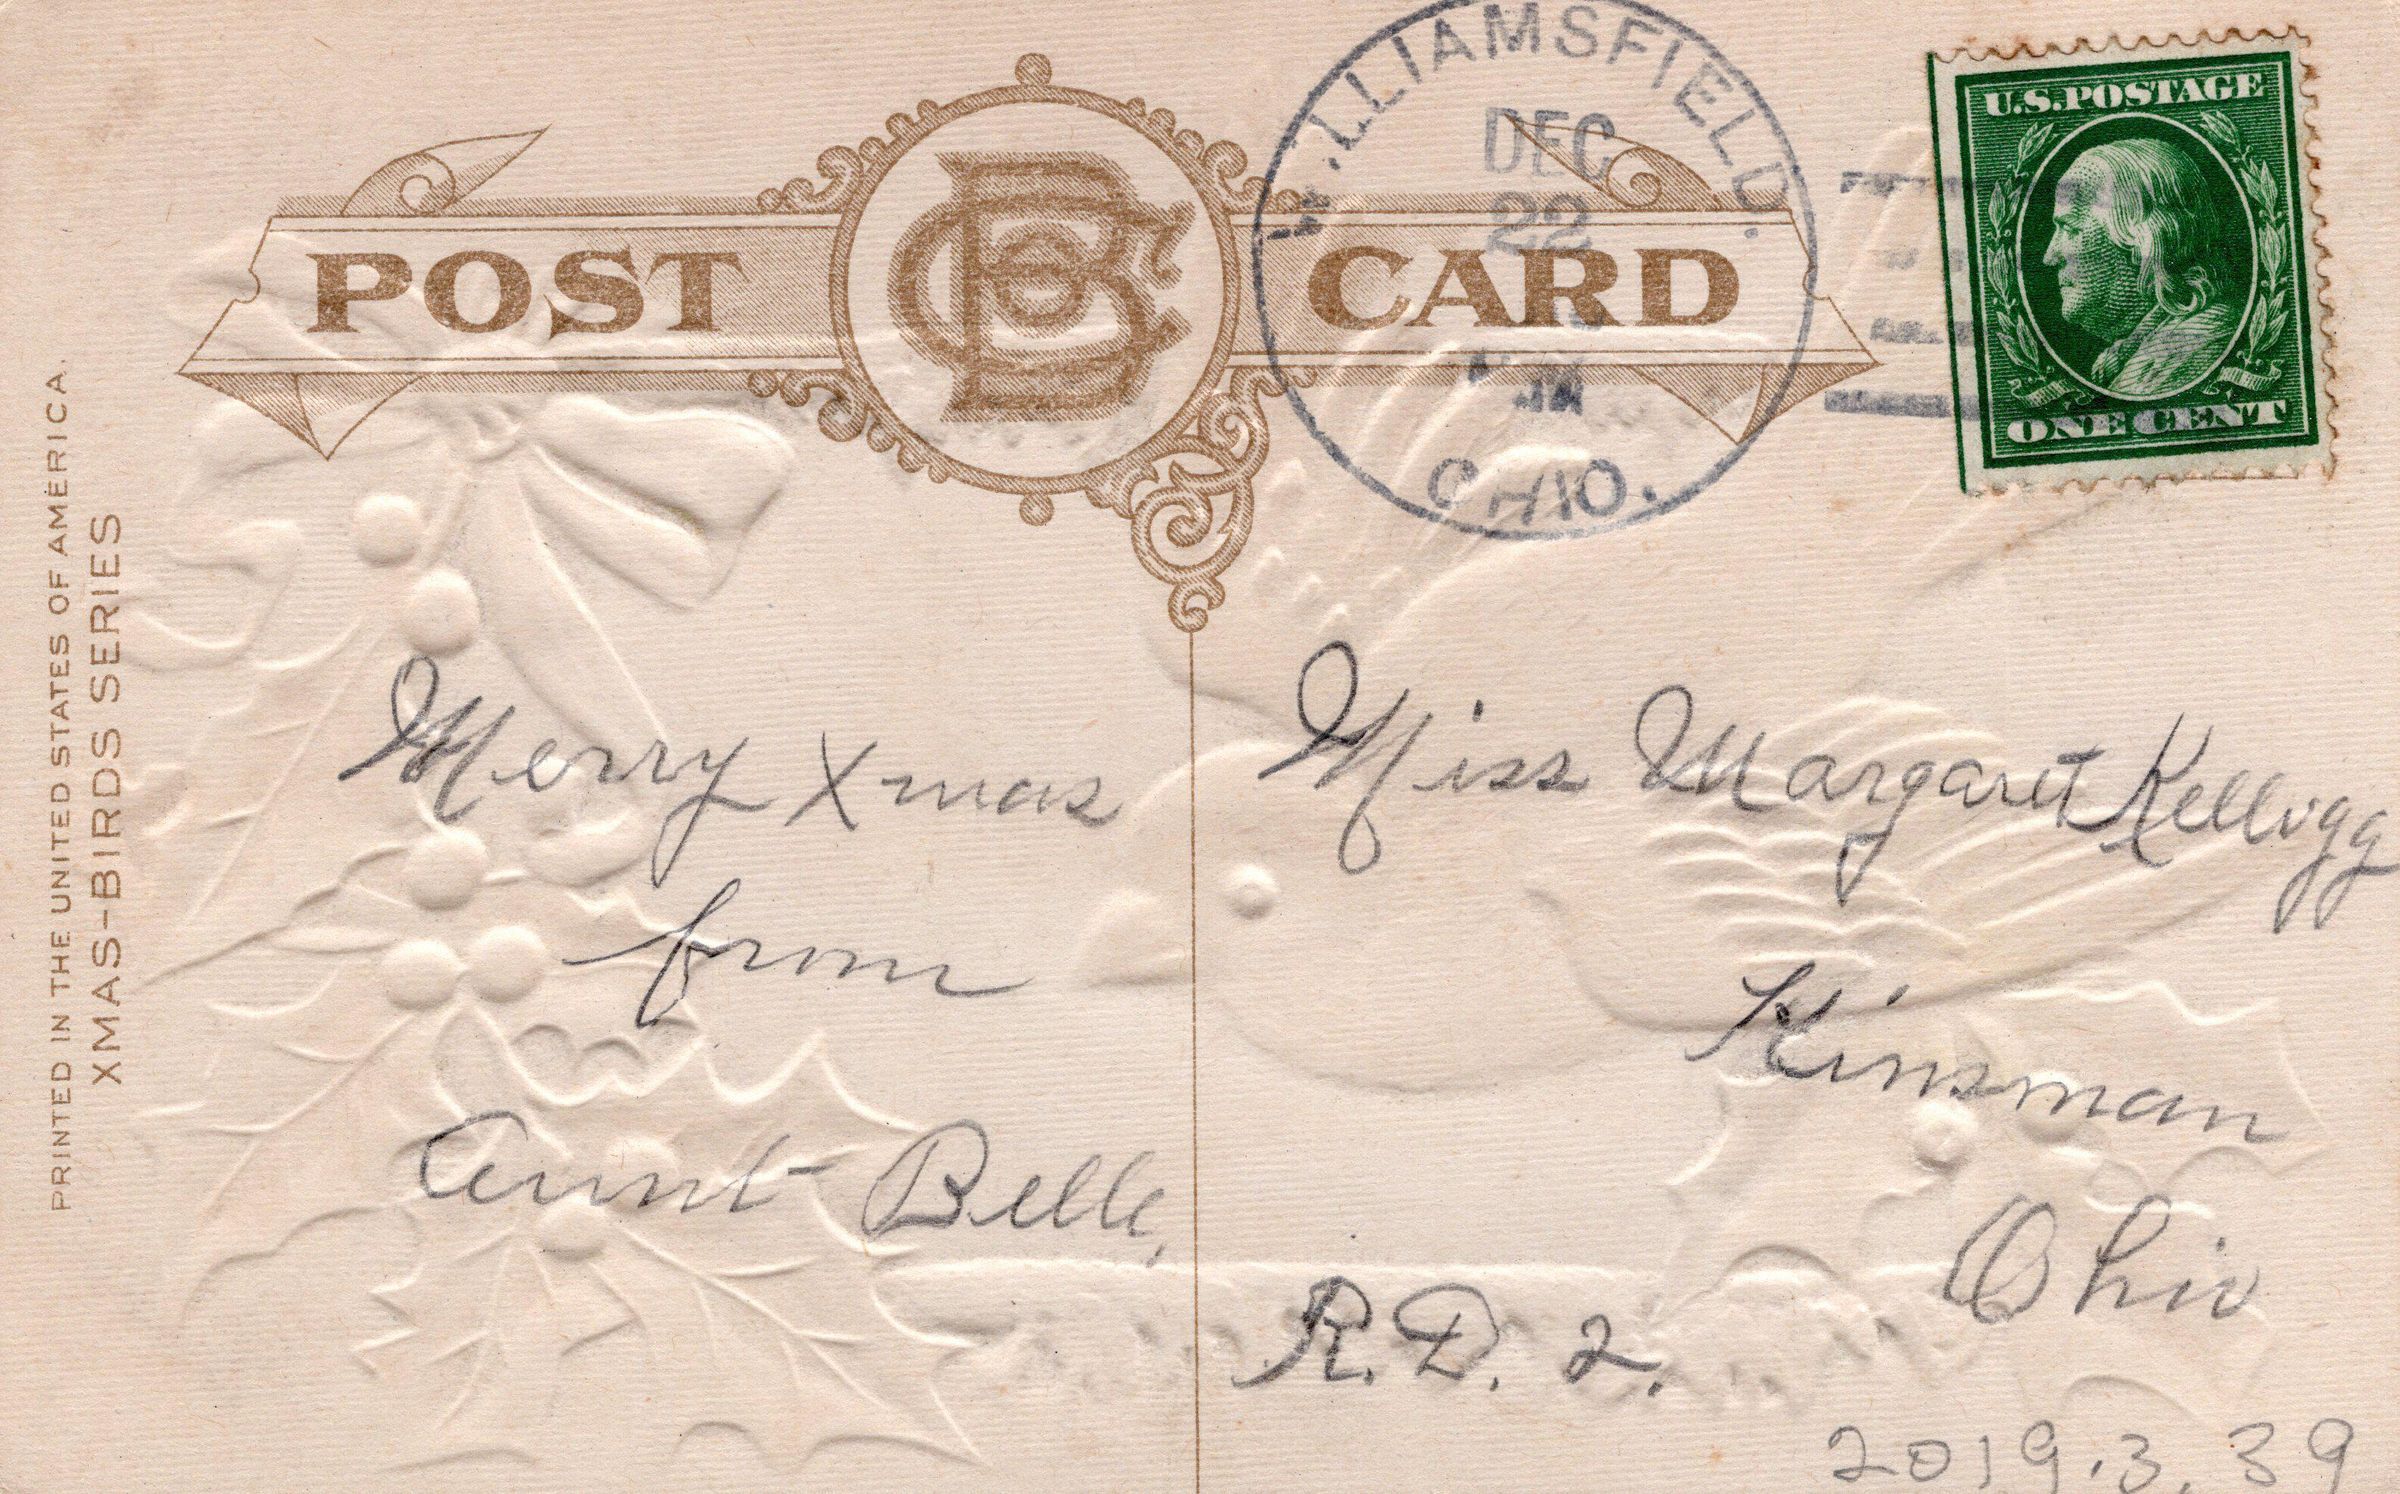 PRINTED IN THE UNITED STATES OF AMERICA.
XMAS-BIRDS SERIES
POST CARD
WILLIAMSFIELD.
DEC
22
OHIO.
U.S.POSTAGE
ONE CENT
Merry Xmas
from
Aunt Belle,
Miss Margaret Kellogg
Kinsman
Ohio
R.D. 2.
2019.3.39